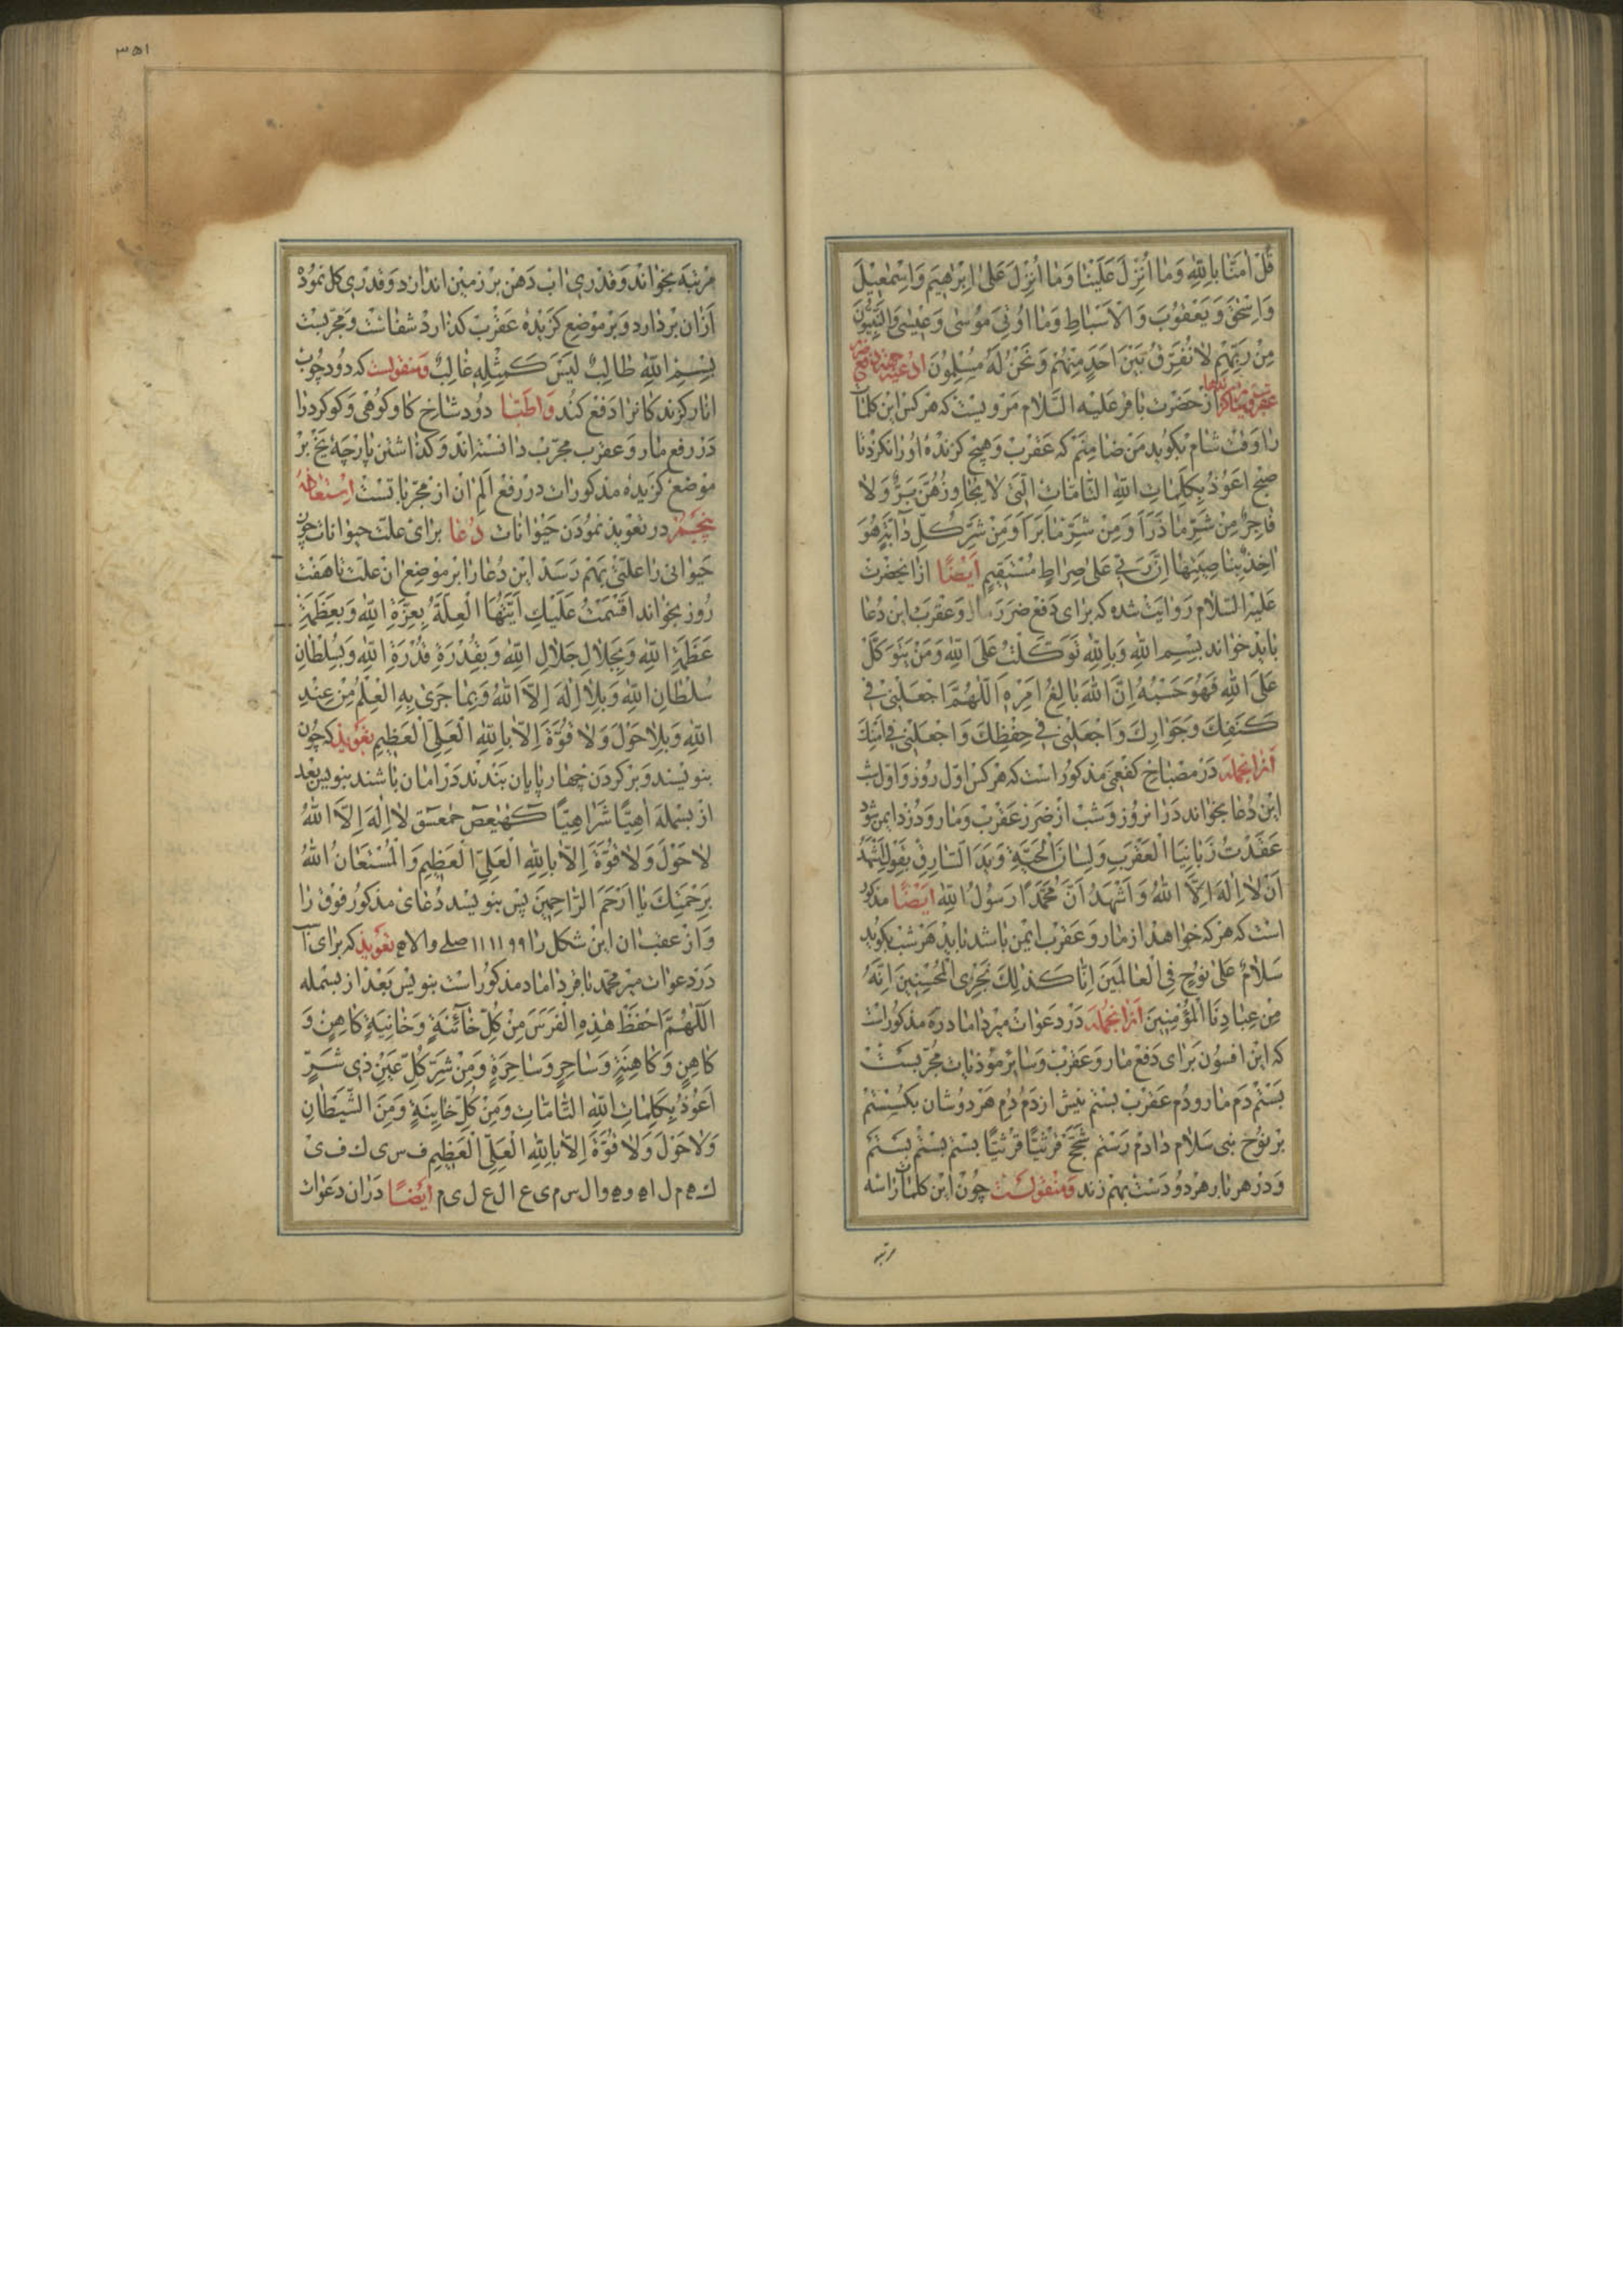 قُلْ امَنَّا بِاللهِ وَمَا اُنْزِلَ عَلَيْنَا وَمَا اُنْزِلَ عَلىٰ اِبْرٰهِيمَ وَاِسْمٰعِيلَ
وَاِسْحٰقَ وَيَعْقُوبَ وَالْاَسْبَاطِ وَمَا اُوتِىَ مُوسٰى وَعِيسٰى وَالنَّبِيُّونَ
مِنْ رَبِّهِمْ لَا نُفَرِّقُ بَيْنَ اَحَدٍ مِنْهُمْ وَنَحْنُ لَهُ مُسْلِمُونَ ادعيه جهة دفع
از حضرت باقر عليه السّلام مرويست که هر کس اين کلمات
را وقت شام بکويد من ضامنم که عقرب و هيچ کزنده او را نکزد تا
صبح اَعُوذُ بِكَلِمَاتِ اللهِ التَّامَّاتِ الَّتى لَا يُجَاوِزُهُنَّ بَرٌّ وَلَا
فَاجِرٌ مِنْ شَرِّ مَا ذَرَاَ وَمِنْ شَرِّ مَا بَرَاَ وَمِنْ شَرِّ كُلِّ دَآبَّةٍ هُوَ
اخِذٌ بِنَاصِيَتِهَا اِنَّ رَبّى عَلىٰ صِرَاطٍ مُسْتَقيمٍ اَيضًا از انحضرت
عليه السّلام روايت شده که براى دفع ضرر مار و عقرب اين دعا
بايد خواند بِسْمِ اللهِ وَبِاللهِ تَوَكَّلْتُ عَلَى اللهِ وَمَنْ يَتَوَكَّلْ
عَلَى اللهِ فَهُوَ حَسْبُهُ اِنَّ اللهَ بَالِغُ اَمْرِهِ اَللّٰهُمَّ اجْعَلْنى فى
كَنَفِكَ وَجَوَارِكَ وَاجْعَلْنى فى حِفْظِكَ وَاجْعَلْنى فى اَمْنِكَ
ازانجمله در مصباح کفعمى مذکور است که هر کس اول روز و اول شب
اين دعا بخواند در ان روز و شب از ضرر عقرب و مار و دزد ايمن شود
عَقَدْتُ زَبَانِيَا الْعَقْرَبِ وَلِسَانَ الْحَيَّةِ وَيَدَ السَّارِقِ بِقَوْلِ اَشْهَدُ
اَنْ لَا اِلٰهَ اِلَّا اللهُ وَاَشْهَدُ اَنَّ مُحَمَّدًا رَسُولُ اللهِ اَيضًا مذکور
است که هر که خواهد از مار و عقرب ايمن باشد بايد هر شب بکويد
سَلَامٌ عَلىٰ نُوحٍ فِى الْعَالَمينَ اِنَّا كَذٰلِكَ نَجْزِى الْمُحْسِنينَ اِنَّهُ
مِنْ عِبَادِنَا الْمُؤْمِنينَ ازانجمله در دعوات مير داماد ره مذکور است
که اين افسون براى دفع مار و عقرب و ساير موذيات مجربست
بستم دم مار و دم عقرب بستم نيش از دم دم هر دوشان بکسستم
بر نوح نبى سلام دادم رستم شجّ قرنيّا قرنيّا بستم بستم بستم
و در هر بار هر دو دست بهم زند و منقولست چون اين کلمات را سه
مرتبه
٣٥١
مرتبه بخواند و قدرى اب دهن بر زمين اندازد و قدرى کل نموده
از ان بردارد و بر موضع کزيده عقرب کذارد شفاست و مجرّبست
بِسْمِ اللهِ طَالِبٌ لَيْسَ كَمِثْلِهِ غَالِبٌ و منقولست که دود چوب
انار کزندکان را دفع کند و اطبّا دود شاخ کاو کوهى و کوکرد را
در رفع مار و عقرب مجرّب دانسته‌اند و کذاشتن پارچه يخ بر
موضع کزيده مذکورات در رفع الم ان از مجرّباتست استعاذه
پنجم در تعويذ نمودن حيوانات دُعا براى علت حيوانات چون
حيوانى را علّتى بهم رسد اين دعا را بر موضع ان علت تا هفت
روز بخواند اَقْسَمْتُ عَلَيْكِ اَيَّتُهَا الْعِلَّةُ بِعِزَّةِ اللهِ وَبِعَظَمَةِ
عَظَمَةِ اللهِ وَبِجَلَالِ جَلَالِ اللهِ وَبِقُدْرَةِ قُدْرَةِ اللهِ وَبِسُلْطَانِ
سُلْطَانِ اللهِ وَبِلَا اِلٰهَ اِلَّا اللهُ وَبِمَا جَرىٰ بِهِ الْعِلْمُ مِنْ عِنْدِ
اللهِ وَبِلَا حَوْلَ وَلَا قُوَّةَ اِلَّا بِاللهِ الْعَلِىِّ الْعَظيمِ تعويذ که چون
بنويسند و بر کردن چهارپايان بندند در امان باشند بنويس بعد
از بسمله اَهِيًّا شَرَاهِيًّا كهيعص حمعسق لَا اِلٰهَ اِلَّا اللهُ
لَا حَوْلَ وَلَا قُوَّةَ اِلَّا بِاللهِ الْعَلِىِّ الْعَظيمِ وَالْمُسْتَعَانُ اللهُ
بِرَحْمَتِكَ يَا اَرْحَمَ الرَّاحِمينَ پس بنويسد دعاى مذکور فوق را
و از عقب ان اين شکل را ٩٩ ١١ ١١ صلے والاه تعويذ که براى
در دعوات مير محمد باقر داماد مذکور است بنويس بعد از بسمله
اَللّٰهُمَّ احْفَظْ هٰذِهِ الْفَرَسَ مِنْ كُلِّ خَآئِنَةٍ وَخَانِيَةٍ كَاهِنٍ وَ
كَاهِنٍ وَكَاهِنَةٍ وَسَاحِرٍ وَسَاحِرَةٍ وَمِنْ شَرِّ كُلِّ عَيْنٍ ذى شَرٍّ
اَعُوذُ بِكَلِمَاتِ اللهِ التَّامَّاتِ وَمِنْ كُلِّ خَايِنَةٍ وَمِنَ الشَّيْطَانِ
وَلَا حَوْلَ وَلَا قُوَّةَ اِلَّا بِاللهِ الْعَلِىِّ الْعَظيمِ ف س ى ك ف ى
ك ه م ل ا ه و ه و ا ل س م ى ع ا ل ع ل ى م اَيضًا در ان دعوات